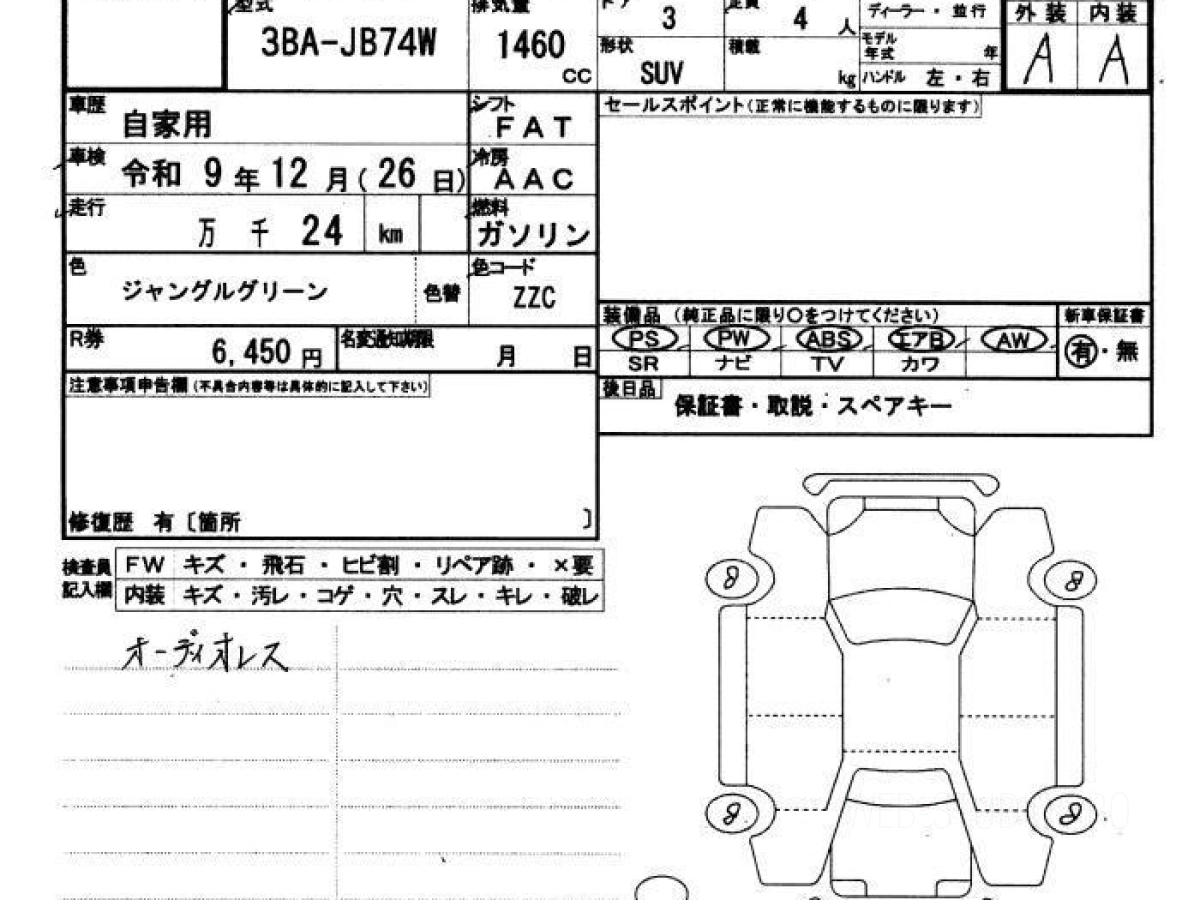 型式 排気量 ドア 3 定員 4 人 ディーラー・並行 外装 内装
3BA-JB74W 1460 cc 形状 SUV 積載 kg モデル年式 年 ハンドル 左・右 A A
車歴 自家用 シフト FAT セールスポイント(正常に機能するものに限ります)
車検 令和 9 年 12 月(26 日) 冷房 AAC
走行 万 千 24 km 燃料 ガソリン
色 ジャングルグリーン 色替 色コード ZZC
R券 6,450 円 名変通知期限 月 日
装備品 (純正品に限り○をつけてください) 新車保証書
PS PW ABS エアB AW 有・無
SR ナビ TV カワ
後日品 保証書・取説・スペアキー
注意事項申告欄(不具合内容等は具体的に記入して下さい)
修復歴 有〔箇所 〕
検査員記入欄 FW キズ・飛石・ヒビ割・リペア跡・×要
内装 キズ・汚レ・コゲ・穴・スレ・キレ・破レ
オーディオレス
8 8
8 8